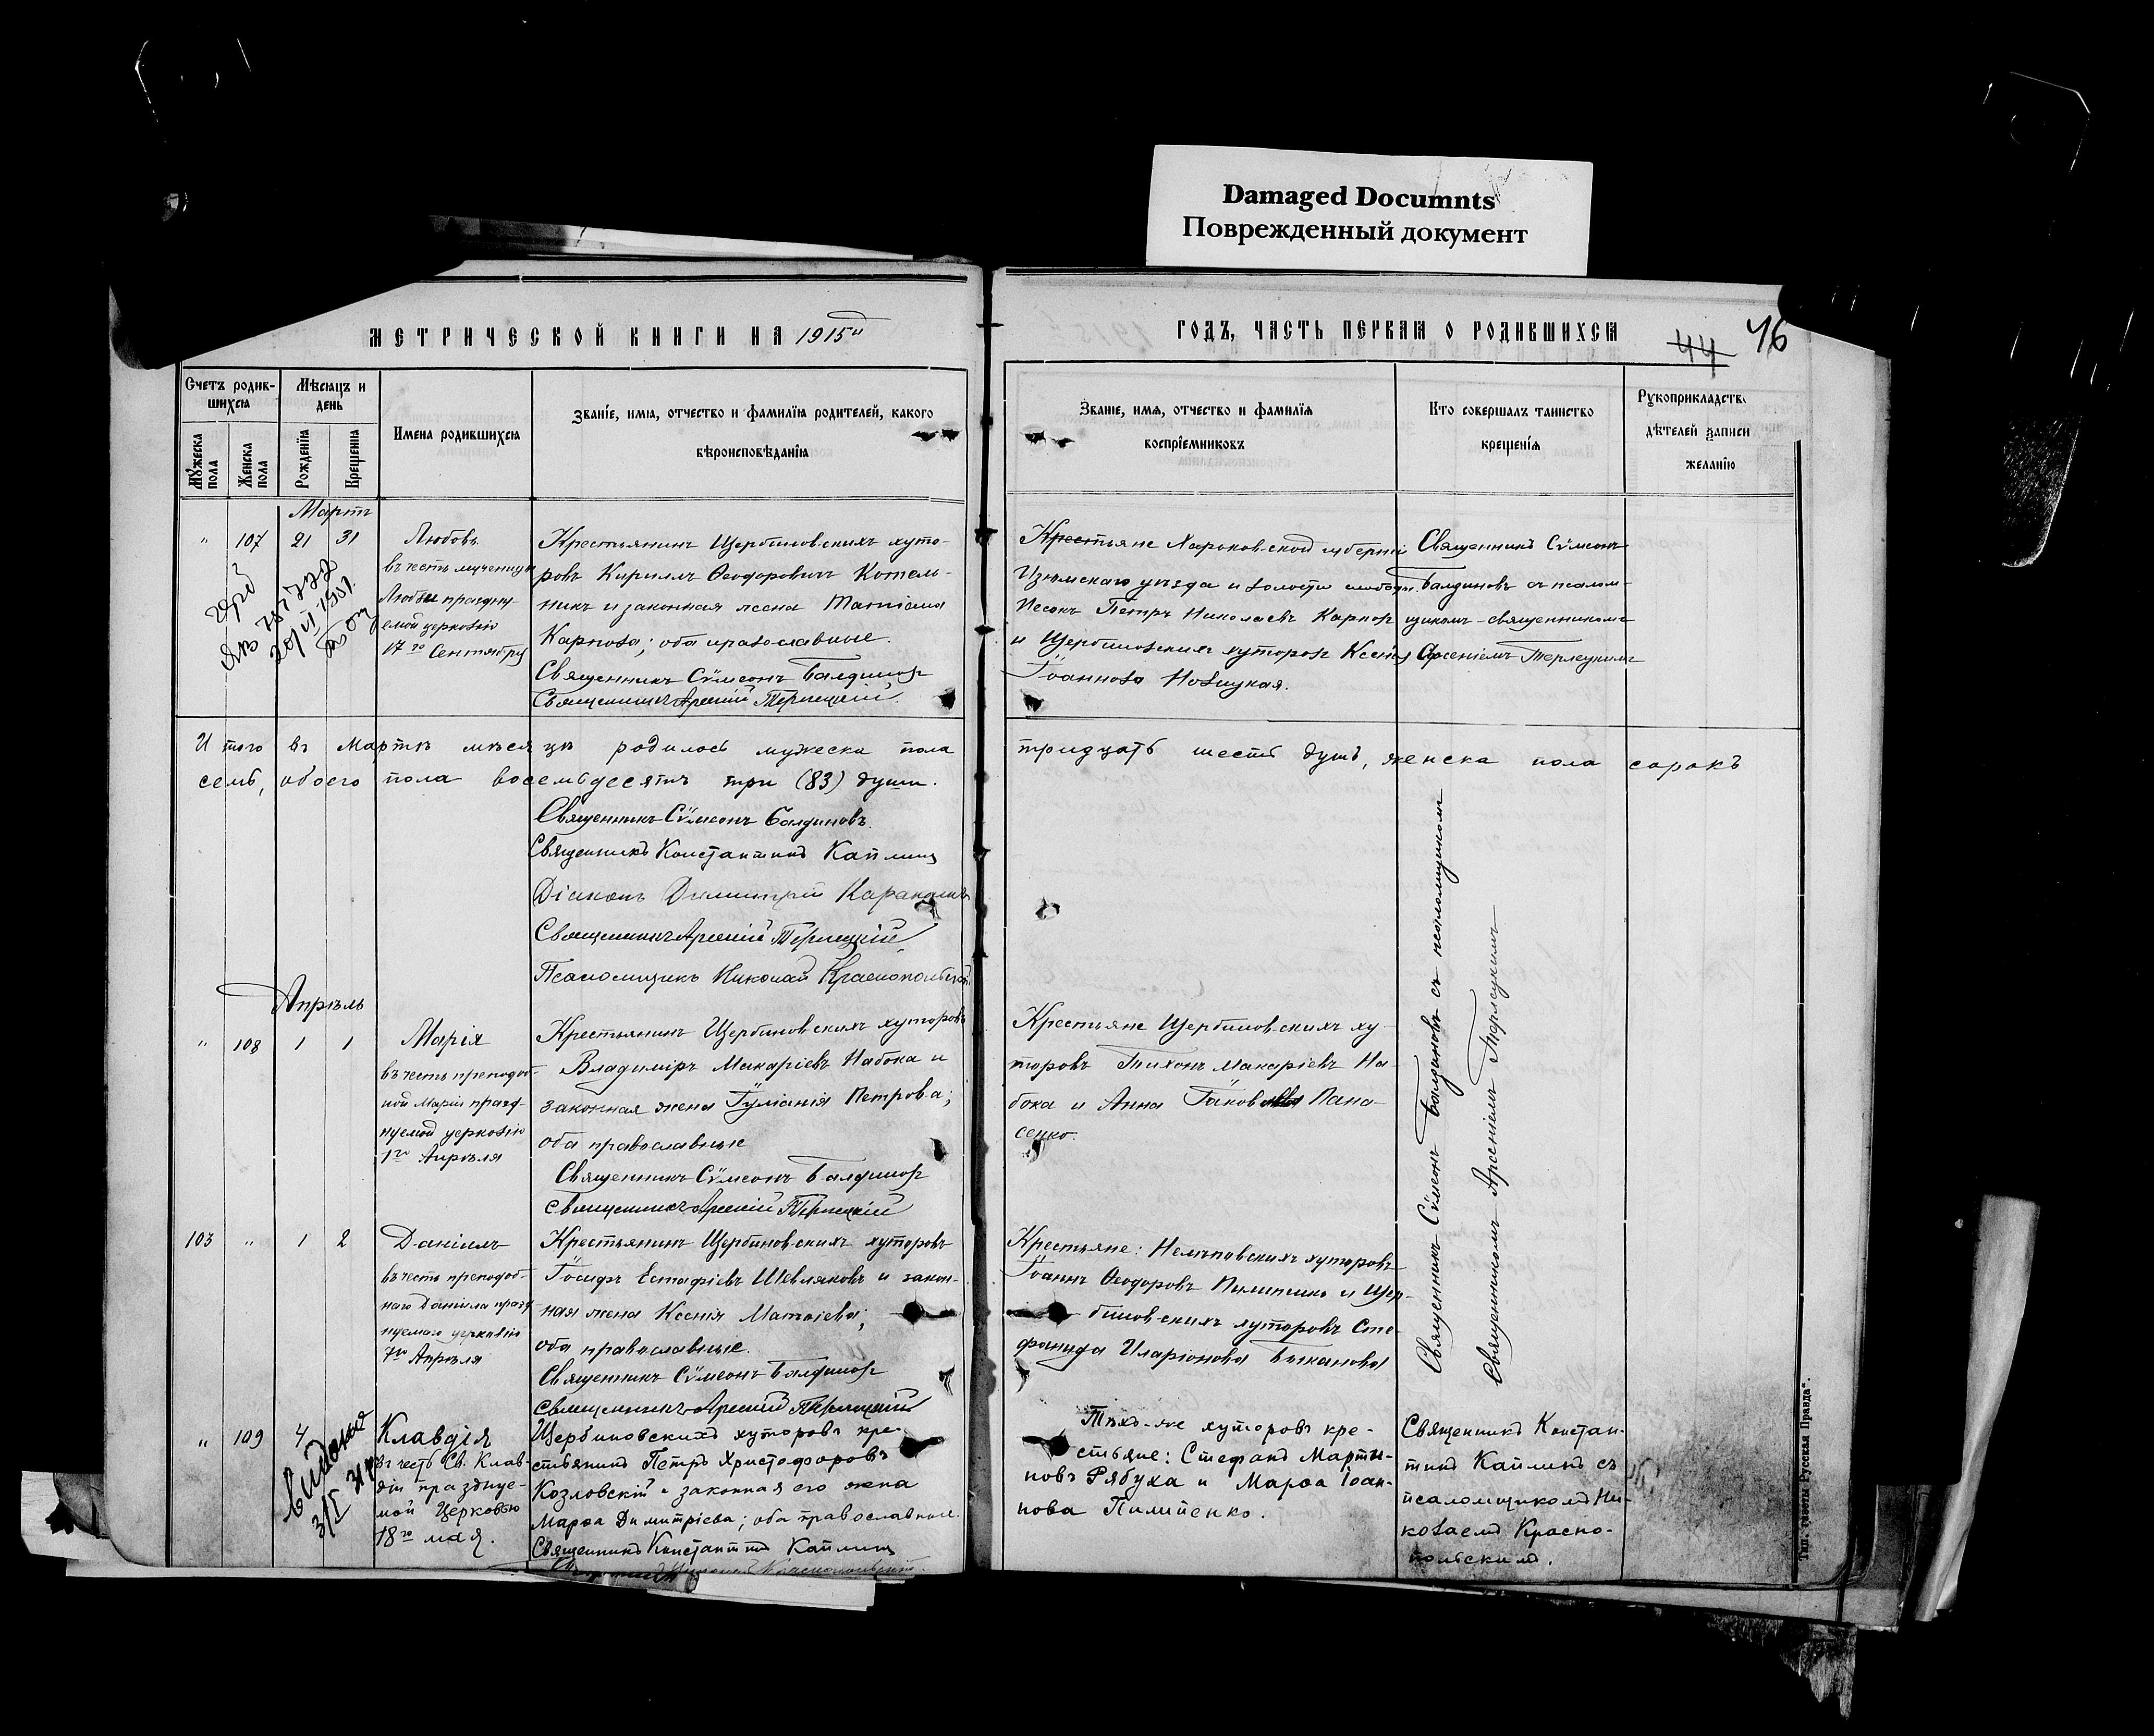 Damaged Documnts
Поврежденный документ
МЕТРИЧЕСКОЙ КНИГИ НА 1915й
ГОДЪ, ЧАСТЬ ПЕРВАЯ О РОДИВШИХСЯ
44 46
Счетъ родив-
шихся
Мѣсяцъ и
день
Мужеска пола
Женска пола
Рожденія
Крещенія
Имена родившихся
Званіе, имя, отчество и фамилія родителей, какого
вѣроисповѣданія
Званіе, имя, отчество и фамилія
воспріемниковъ
Кто совершалъ таинство
крещенія
Рукоприкладств
дѣтелей записи
желанію
Мартъ
" 107 21 31
Любовь
въ честь мученицы
Любви праздну-
емой церковію
17го Сентября
Крестьянинъ Щербиновскихъ хуто-
ровъ Кириллъ Ѳеодоровичъ Котель-
никъ и законная жена Татіана
Карпова; оба православные.
Священникъ Сѵмеонъ Балдинов
Священникъ Арсеній Терлецкій.
Крестьяне Харьковской губерніи
Изюмскаго уѣзда и волости слободы
Песокъ Петръ Николаевъ Карпов
и Щербиновскихъ хуторов Ксенія
Іоаннова Новицкая.
Священникъ Сѵмеонъ
Балдиновъ съ псалом-
щикомъ-священникомъ
Арсеніемъ Терлецкимъ
Итого въ Мартѣ мѣсяцѣ родилось мужеска пола тридцать шесть душъ, женска пола сорокъ
семь, обоего пола восемьдесятъ три (83) души.
Священникъ Сѵмеонъ Балдиновъ.
Священникъ Константинъ Каплинъ
Діаконъ Димитрій
Священникъ Арсеній Терлецкій
Псаломщикъ Николай Краснопольскій
Апрѣль
" 108 1 1
Марія
въ честь преподоб-
ной Маріи празд-
нуемой церковію
1го Апрѣля
Крестьянинъ Щербиновскихъ хуторовъ
Владиміръ Макаріевъ Набока и
законная жена Іуліанія Петрова;
оба православные
Священникъ Сѵмеонъ Балдинов
Священникъ Арсеній Терлецкій
Крестьяне Щербиновскихъ ху-
торовъ Тихонъ Макаріевъ На-
бока и Анна Іаковлева Пана-
сенко.
Священникъ Сѵмеонъ Балдиновъ съ псаломщикомъ
Священникомъ Арсеніемъ Терлецкимъ
103 " 1 2
Даніилъ
въ честь преподоб-
наго Даніила празд-
нуемаго церковію
7го Апрѣля
Крестьянинъ Щербиновскихъ хуторовъ
Іосифъ Естафіевъ Шевляковъ и закон-
ная жена Ксенія Матѳіева;
оба православные.
Священникъ Сѵмеонъ Балдинов
Священникъ Арсеній Терлецкій
Крестьяне: Нелѣповскихъ хуторовъ
Іоаннъ Ѳеодоровъ Пилипенко и Щер-
биновскихъ хуторовъ Сте-
фанида Иларіонова Быканова
" 109 4
Клавдія
въ честь Св. Клав-
діи празднуе-
мой Церковью
18го мая.
Щербиновскихъ хуторовъ кре-
стьянинъ Петръ Христофоровъ
Козловскій и законная его жена
Марѳа Димитріева; оба православные.
Священникъ Константинъ Каплинъ
Тѣхъ-же хуторовъ кре-
стьяне: Стефанъ Марты-
новъ Рябуха и Марѳа Іоан-
нова Пилипенко.
Священникъ Констан-
тинъ Каплинъ съ
псаломщикомъ Ни-
колаемъ Красно-
польскимъ.
Тип. газеты „Русская Правда“.